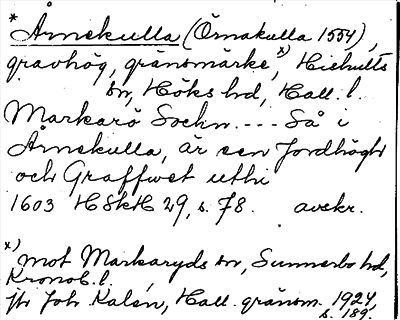 * Årnekulla (Örnakulla 1554),
gravhög, gränsmärke x), Hishults
sn, Höks hd, Hall. l.
Markarö Sochn .... Så i
Årnekulla, är een Jordhögh
och Graffwet uthi
1603 HSkH 29, s. 78. avskr.
x) mot Markaryds sn, Sunnerbo hd,
Kronob. l.
jfr Joh Kalén, Hall. gränsm. 1924,
s. 189.